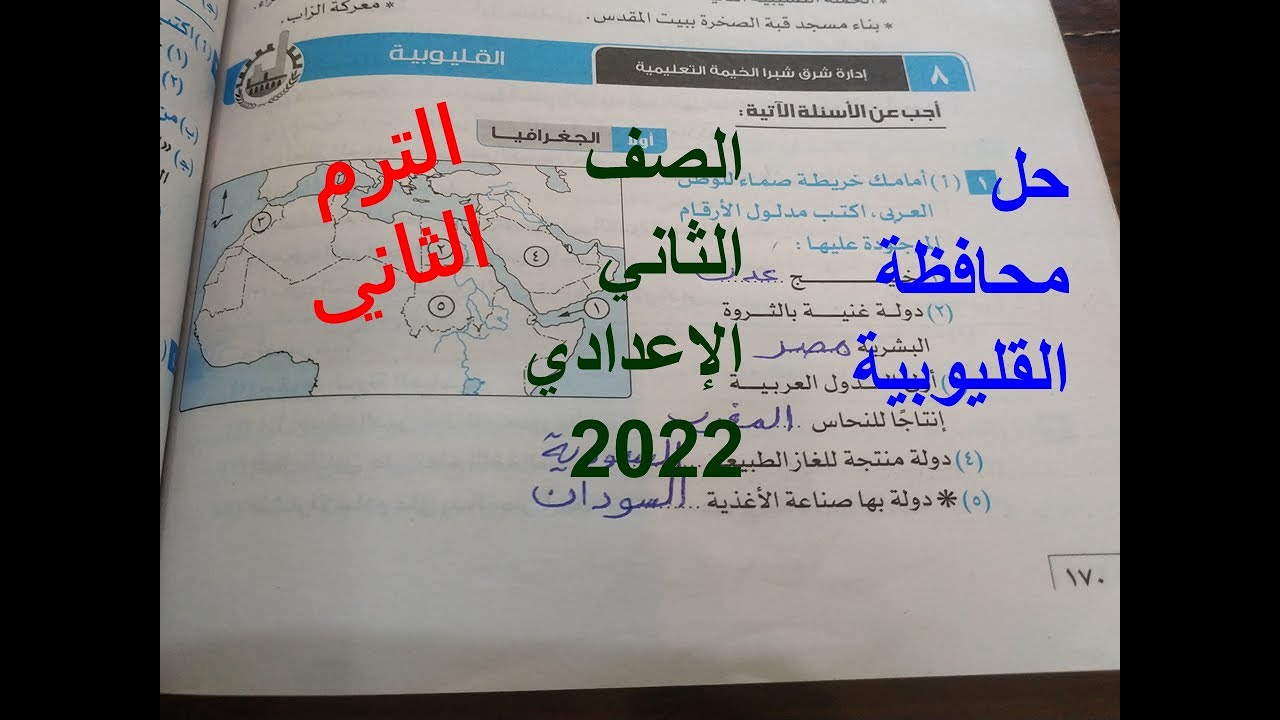 * بناء مسجد قبة الصخرة ببيت المقدس.
* معركة الزاب.
٨
إدارة شرق شبرا الخيمة التعليمية
القليوبية
أجب عن الأسئلة الآتية:
أولاً الجغرافيا
١ (أ) أمامك خريطة صماء للوطن
العربى، اكتب مدلول الأرقام
الموجودة عليها:
عدن
(٢) دولة غنية بالثروة
البشرية مصر
الدول العربية
إنتاجًا للنحاس المغرب
(٤) دولة منتجة للغاز الطبيعى السعودية
(٥) * دولة بها صناعة الأغذية السودان
١٧٠
٣
٢
٤
٥
١
حل
محافظة
القليوبية
الصف
الثاني
الإعدادي
2022
الترم
الثاني